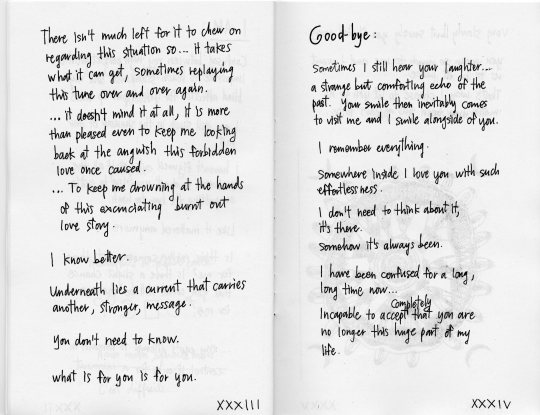 There isn't much left for it to chew on
regarding this situation so... it takes
what it can get, sometimes replaying
this tune over and over again.
... it doesn't mind it at all, it is more
than pleased even to keep me looking
back at the anguish this forbidden
love once caused.
... To keep me drowning at the hands
of this excruciating burnt out
love story.
I know better.
Underneath lies a current that carries
another, stronger, message.
You don't need to know.
what is for you is for you.
XXXIII
Good-bye:
Sometimes I still hear your laughter...
a strange but comforting echo of the
past. Your smile then inevitably comes
to visit me and I smile alongside of you.
I remember everything.
Somewhere inside I love you with such
effortlessness.
I don't need to think about it,
it's there.
Somehow it's always been.
I have been confused for a long,
long time now...
completely
Incapable to accept that you are
no longer this huge part of my
life.
XXXIV